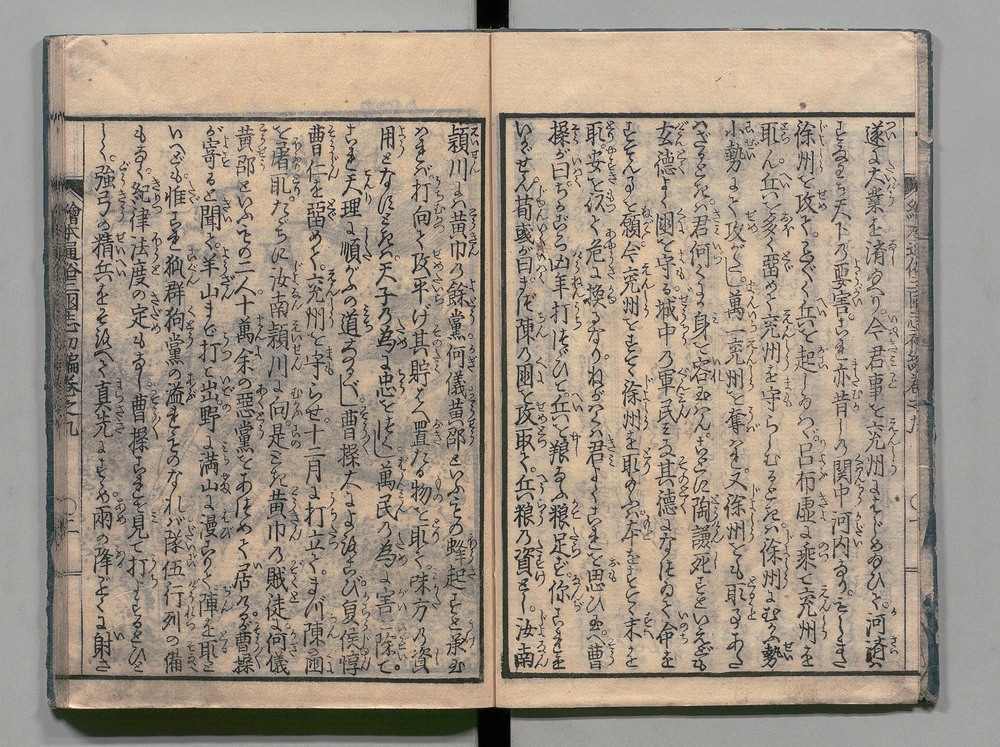 遂に大業を済給へり今君事を兗州よりはじめ給ひて河済は
すなはち天下の要害にて亦昔しの関中河内なりもしまた
徐州を攻てことごとく兵を起し給はゞ呂布虚に乗て兗州を
取ん兵を多く留めて兗州を守らしむるときは徐州にむかふ勢
小勢にて攻がたし萬一兗州を奪はれ又徐州をも取得ずんば
へざるときは君何くに身を容給はん今すでに陶謙死すといへども
玄徳よく國を守る城中の軍民ミな其徳になづひて命を
すてんことを願今兗州をすてゝ徐州を取給ふは本をすてゝ末を
取安を以て危に換るなりねがはくは君よくこれを思ひ玉へ曹
操が曰ちかごろ五年打つゞひて兵粮乏ふ粮足ず你これを
いかゞせん荀彧が曰まづ陳の國を攻取て兵粮の資とし汝南
頴川に黄巾の餘黨何儀黄邵といふもの蜂起すと承玉
はれば打向て攻平げ其貯へ置たる物を取て味方の資
用となすときは天子の為に忠をつくし萬民の為に害を除て
これ天理に順がふの道なるべし曹操大によろこび夏侯惇
曹仁を留めて兗州を守らせ十二月に打立てまづ陳の國
を屠取たゞちに汝南頴川に向是とき黄巾の賊徒に何儀
黄邵といふもの二人十萬余の惡黨をあつめて居けるが曹操
が寄ると聞て羊山まで打て出野に満山に漫こりて陣を取と
いへども惟これ狐群狗黨の溢れものなれば隊伍行列の備
もなく紀律法度の定もなし曹操これを見て打わらふもひと
し強弓の精兵をそろへて真先にすゝめ雨の降ごとく射させ
繪本通俗三國志初編巻之九